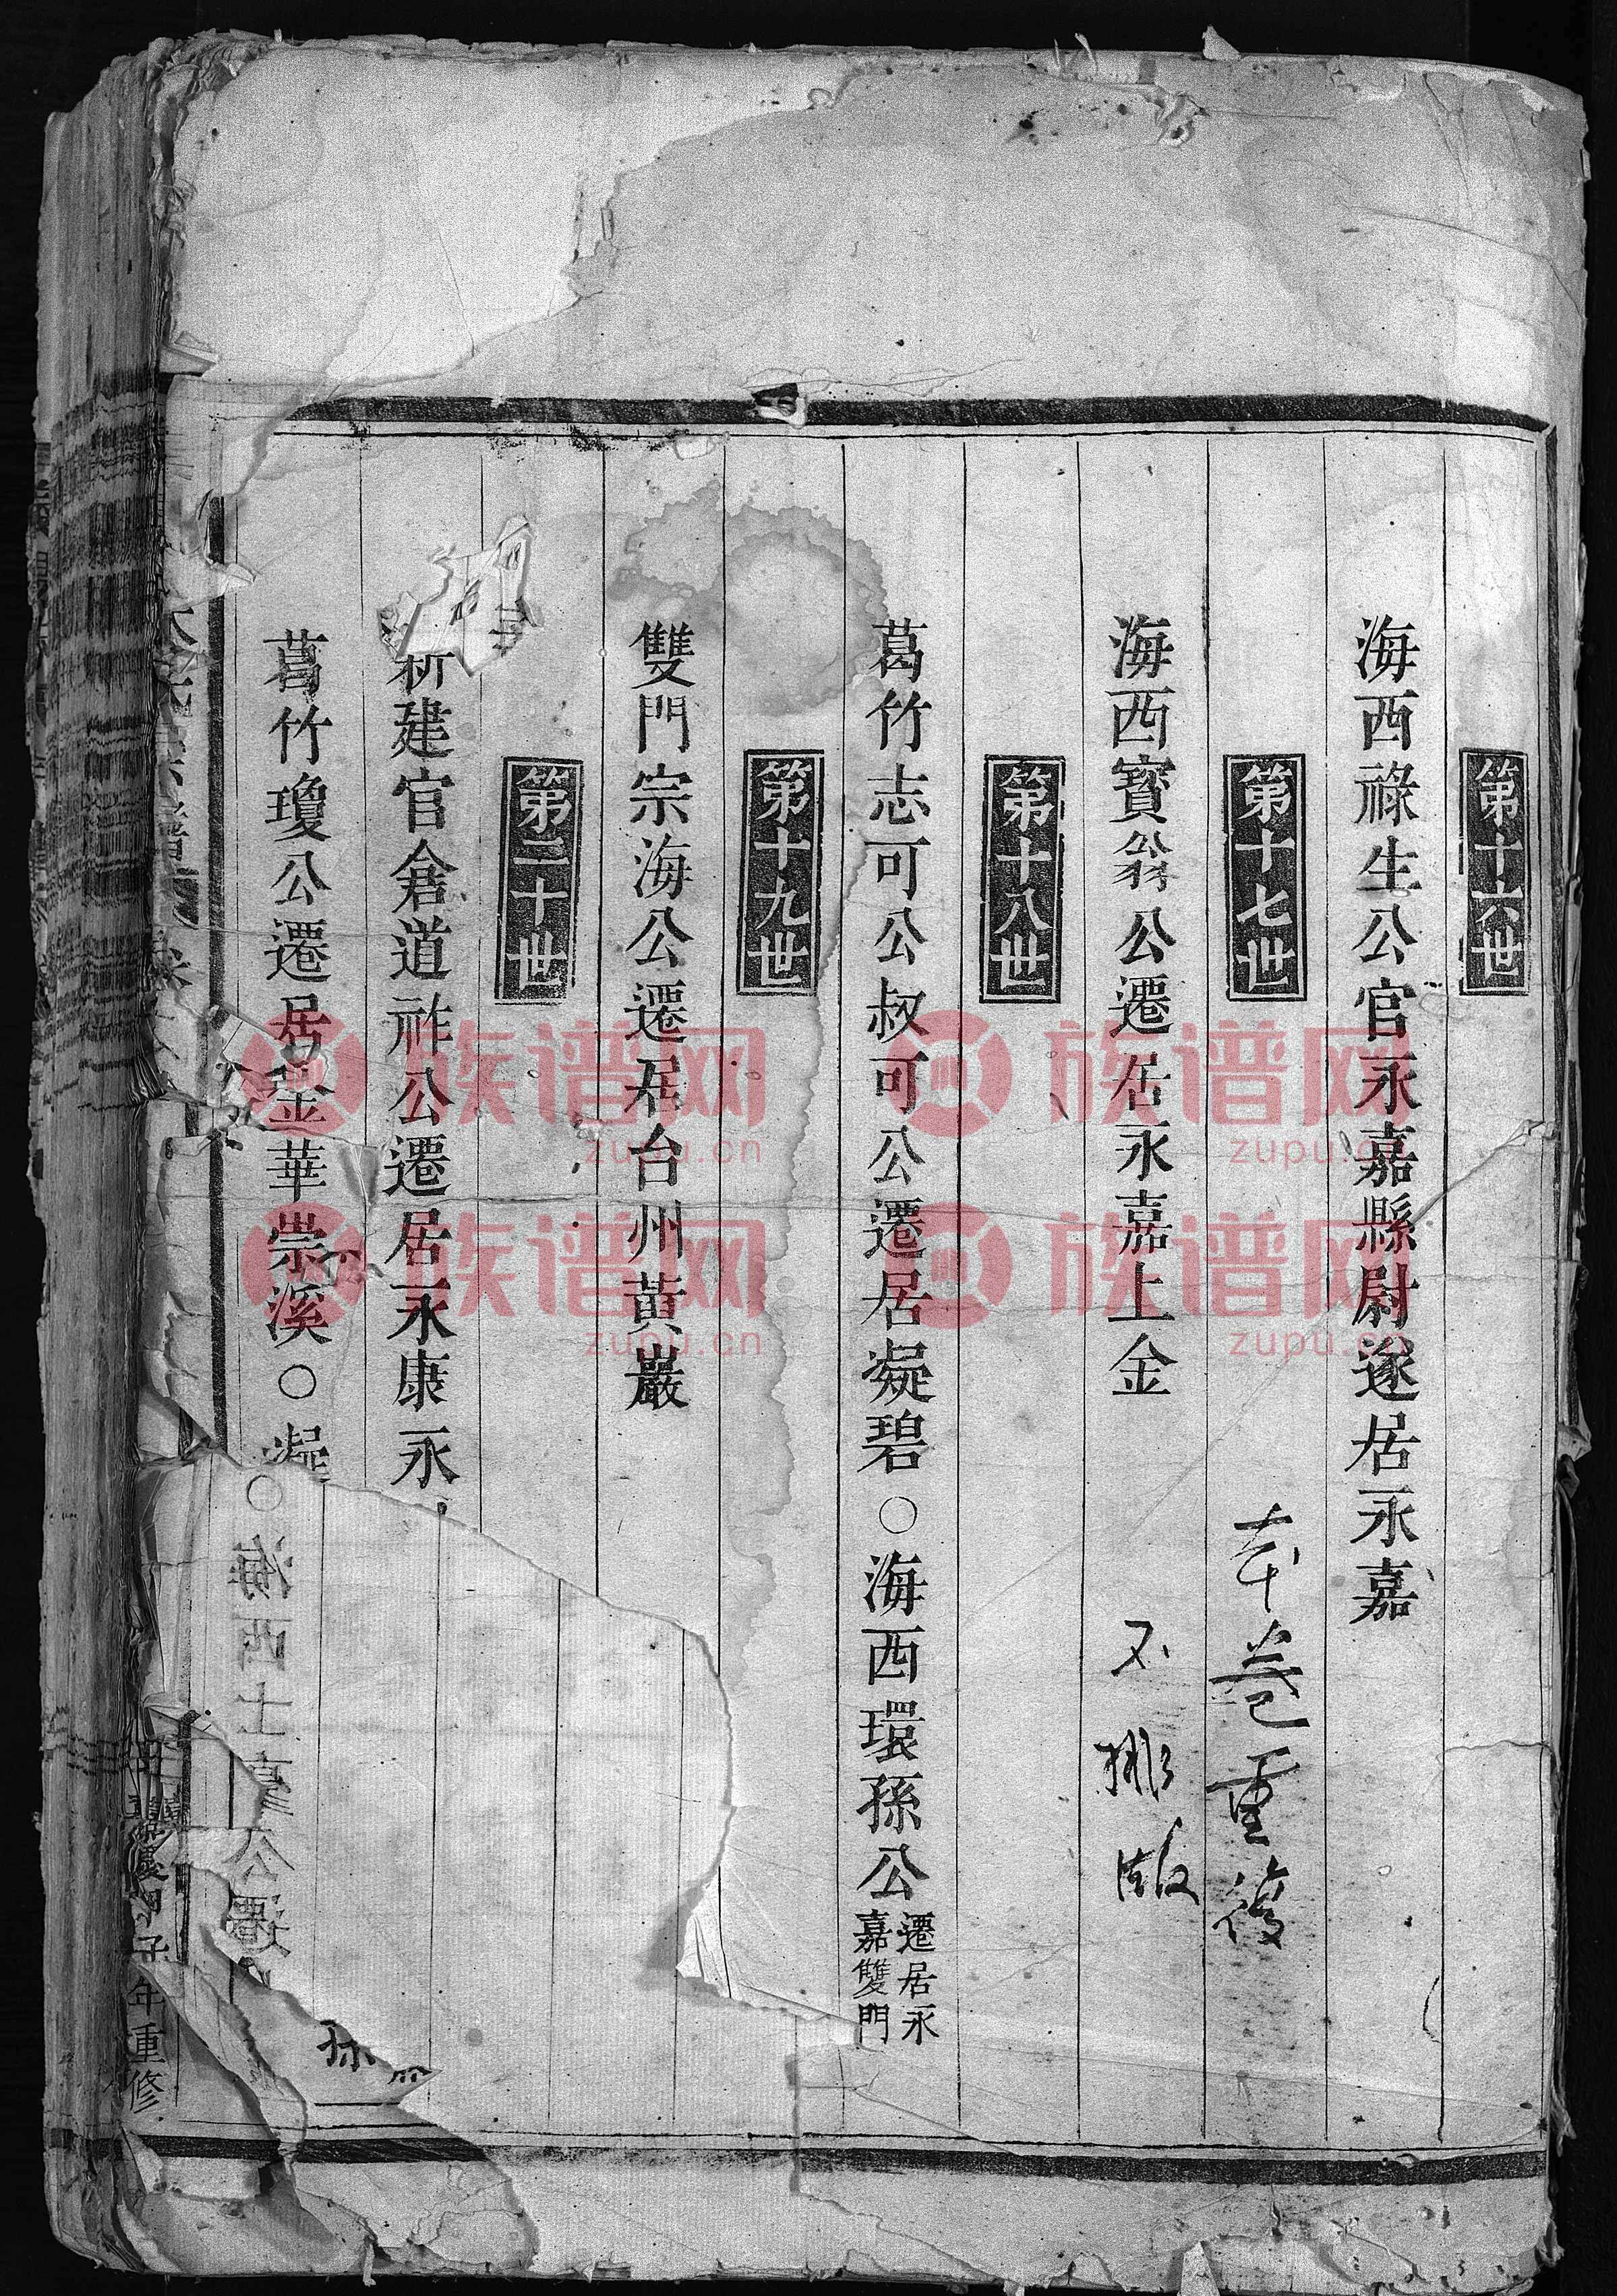 第十六世
海西祿生公官永嘉縣尉遂居永嘉
第十七世
本卷重復
海西寳翁公遷居永嘉上金
不排版
第十八世
葛竹志可公叔可公遷居凝碧○海西環孫公
遷居永
嘉雙門
第十九世
雙門宗海公遷居台州黃巖
第二十世
新建官倉道祚公遷居永康永
葛竹瓊公遷居金華崇溪○凝
○海西士
公遷
孫
年重修
族谱网
zupu.cn
族谱网
zupu.cn
族谱网
zupu.cn
族谱网
zupu.cn